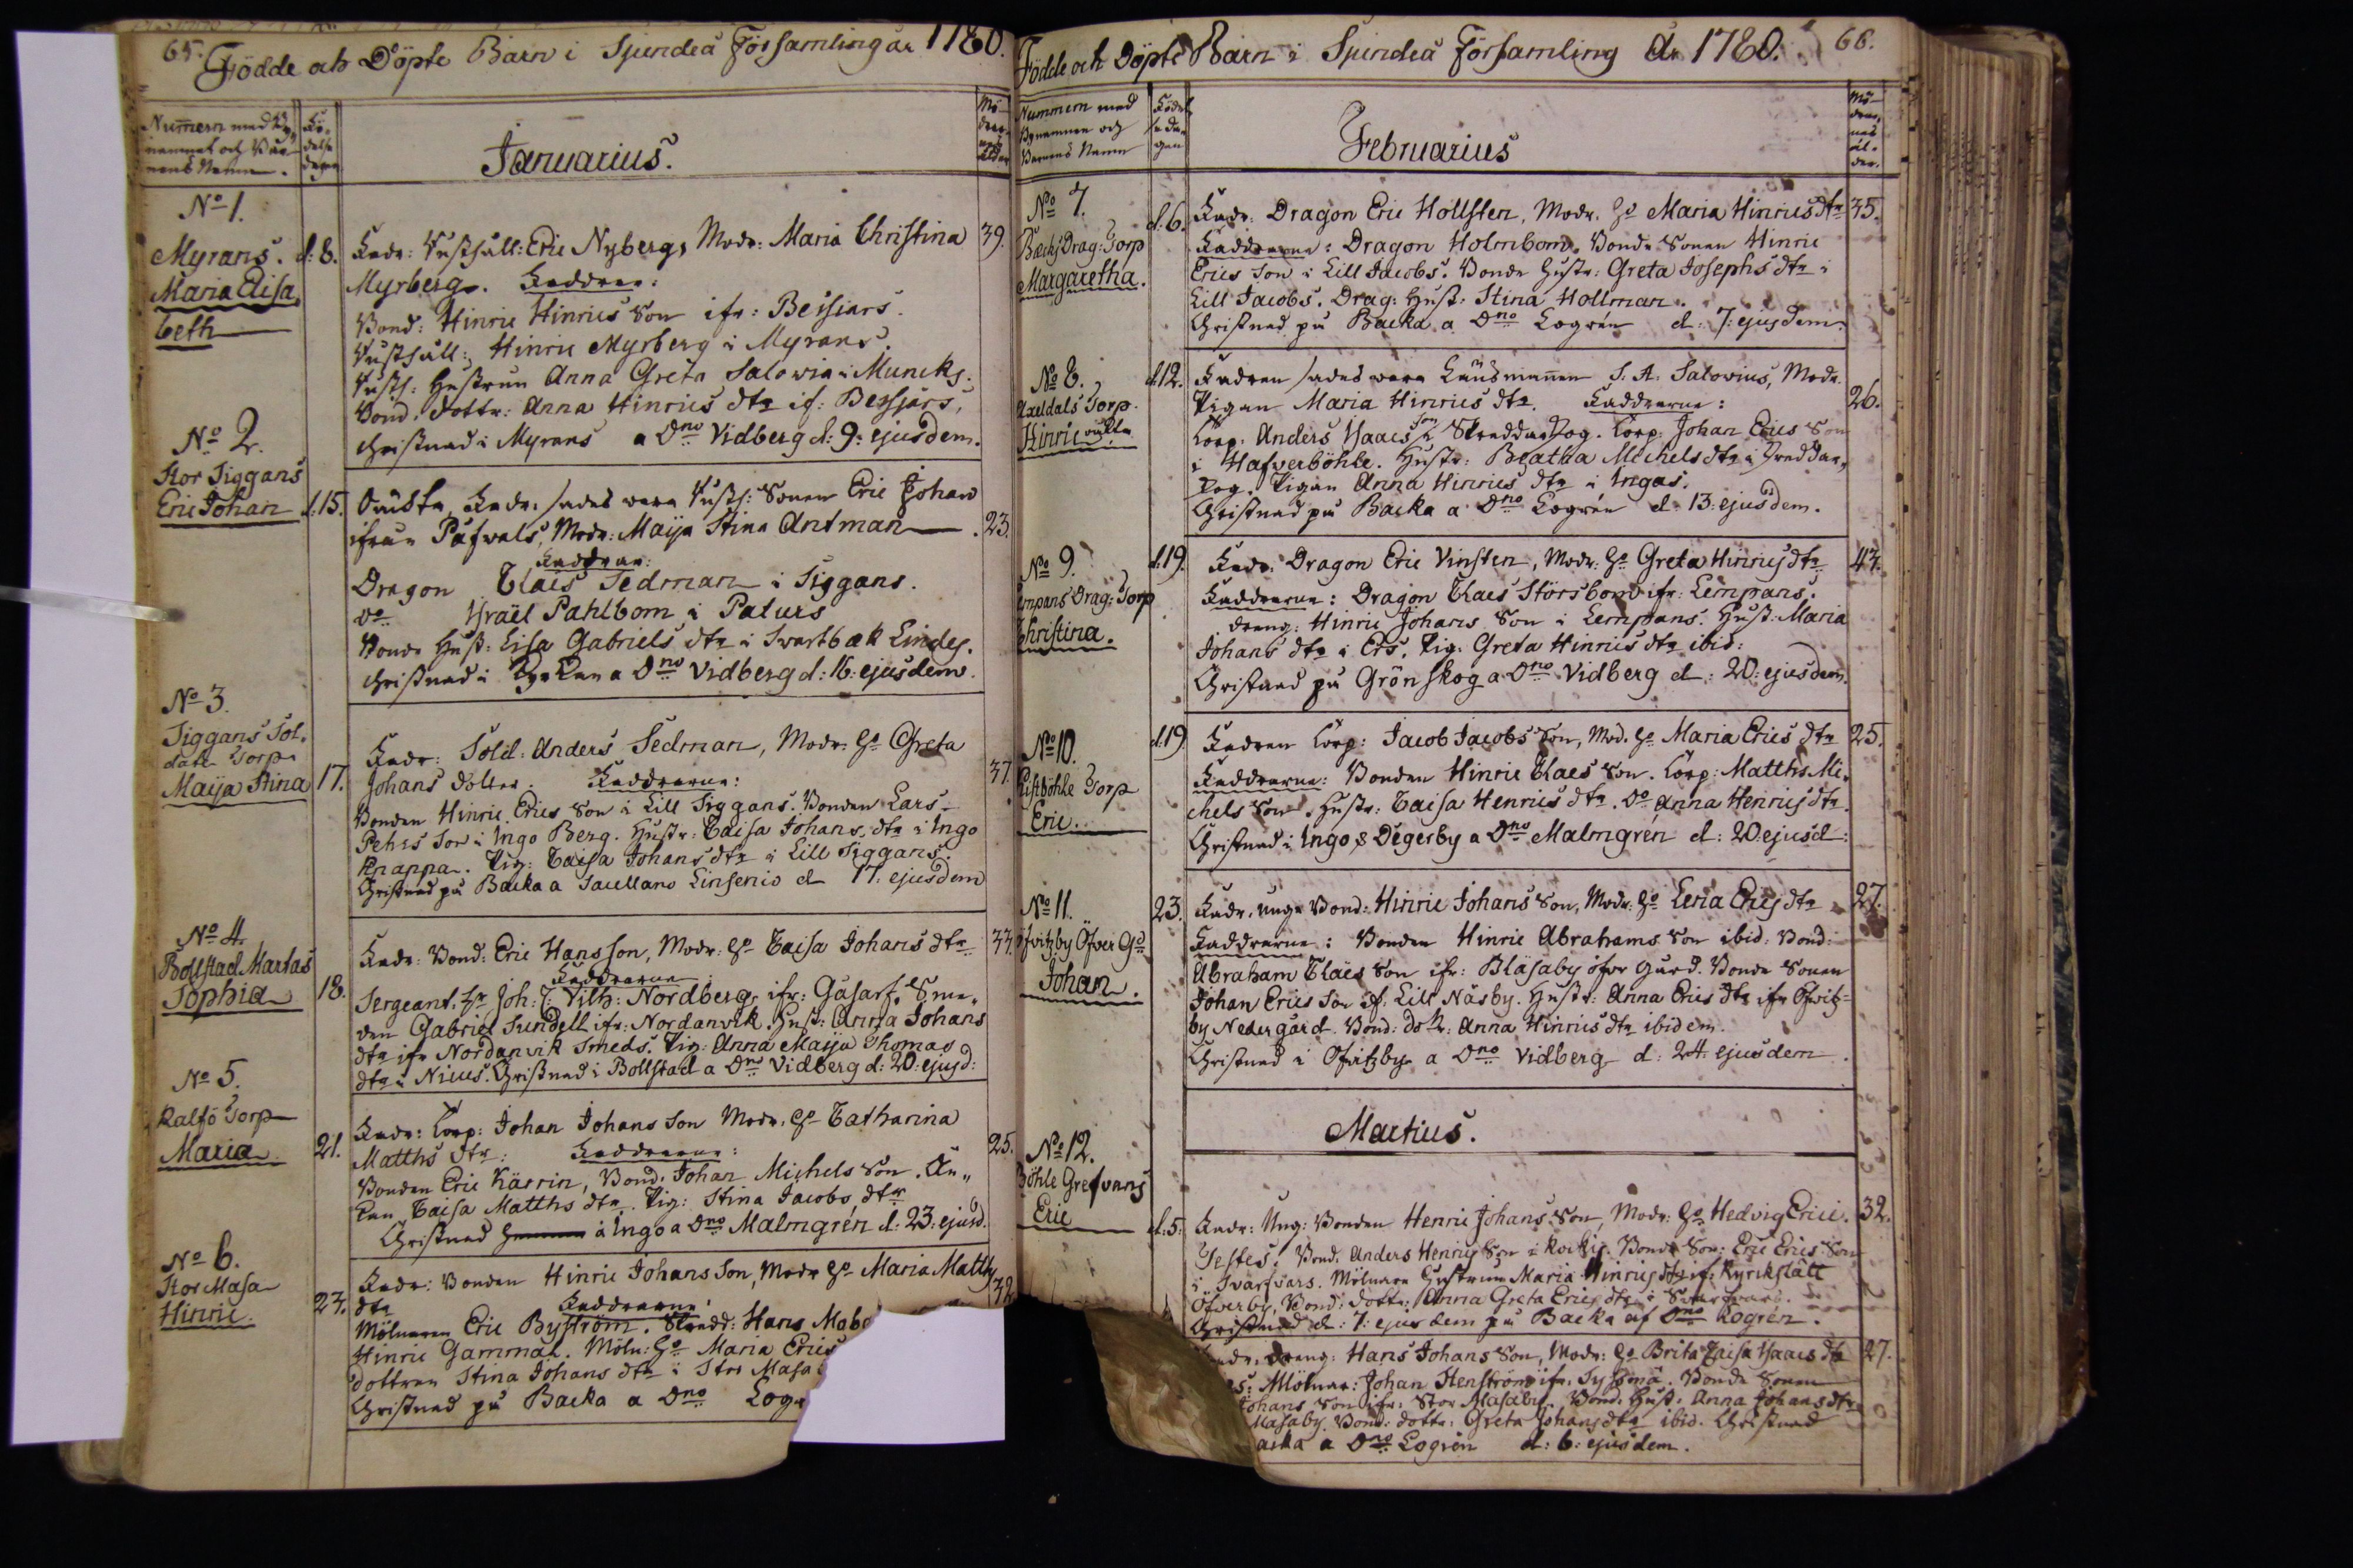 65. Födde och Döpte Barn i Sjundeå Församling år 1780.
Num̅ern med By-
namnet och Bar-
nens Namn.
Fö-
delse
dagen
Januarius.
Mö-
drar-
nas
ålder
No 1.
Myrans.
Maria Elisa
beth
d: 8.
Fadr: Rusthåll: Eric Nyberg, Modr: Maria Christina
39.
Myrberg. Faddrar:
Bond: Hinric Hinrics Son ifr: Beijars.
Rusthåll: Hinric Myrberg i Myrans.
Rusth: Hustrun Anna Greta Salovia i Muncks.
Bond: dottr: Anna Hinrics dtr if: Beijars,
christnad i Myrans a Dno Vidberg d: 9: ejusdem.
No 2.
Stor Siggans
Eric Johan
d. 15.
Oäckta, Fadr: sades wara Rusth: Sonen Eric Johan
ifrån Påfwals, Modr: Maija Stina Antman
23.
Faddrar:
Dragon Claës Sedman i Siggans.
Do Israël Pahlbom i Paturs
Bonde Hust: Lisa Gabriels dtr i Swartbäck Lindes.
christnad i a Dno Vidberg d: 16: ejusdem.
No 3.
Siggans Sol-
date Torp
Maija Stina
17.
Fadr: Sold: Anders Sedman, Modr: Ho Greta
37.
Johans dotter Faddrarne:
Bonden Hinric Erics Son i Lill Siggans. Bonden Lars
Pehrs Son i Ingo Berg. Hustr: Caisa Johans dtr i Ingo
Knappa. Pig: Caisa Johans dtr i Lill Siggans.
Christnad på Backa a Sacellano Linsenio d 17. ejusdem
No 4.
Bollstad Martas
Sophia
18.
Fadr: Bond: Eric Hansson, Modr: Ho Caisa Johans dtr
33.
Faddrarne
Sergeant. Hr Joh: Vilh: Nordberg ifr: Gåsarf. Sme-
den Gabriel Sundell ifr: Nordanvik. Hust: Anna Johans
dtr ifr Nordanvik Smeds. Pig: Anna Maija Thomas
dtr i Nicus. Christnad i Bollstad a Dno Vidberg d: 20: ejusd:
No 5.
Kalfö Torp
Maria
21.
Fadr: Torp: Johan Johans Son Modr: Ho Catharina
25.
Matths dtr: Faddrarne:
Bonden Eric Kärrin, Bond: Johan Michels Son. En-
kan Caisa Matths dtr. Pig: Stina Jacobs dtr
Christnad i Ingo a Dno Malmgrén d: 23: ejusd.
No 6.
Stor Masa
Hinric.
23.
Fadr: Bonden Hinric Johans Son, Modr Ho Maria Matths
38
dtr Faddrarne:
Mölnaren Eric Byström. Skredd: Hans
Hinric Gammal. Möln: Ho Maria Erics
dottren Stina Johans dtr i Stor Masa
Christnad på Backa a Dno Logr
Födde och Döpte Barn i Sjundeå Församling År 1780. 66.
Nummern med
Bynamnen och
Barnens Namn
Födel-
seda-
gen
Februarius
Mö-
drar-
nas
ål-
der.
No 7.
Bäcks Drag: Torp
Margaretha.
d. 6.
Fadr: Dragon Eric Hollsten, Modr. Ho Maria Hinrics dtr
35.
Faddrarne: Dragon Holmbom. Bonde Sonen Hinric
Erics Son i Lill Jacobs. Bonde Hustr: Greta Josephs dtr i
Lill Jacobs. Drag: Hust: Stina Hollman.
Christnad på Backa a Dno Logrén d: 7: ejusdem.
No 8.
Axeldals Torp.
Hinric oäkta
d. 12.
Fadren sades wara Länsmannen S. A. Salovius, Modr.
26.
Pigan Maria Hinrics dtr. Faddrarne:
Torp: Anders Isaacs Son i Skreddarskog. Torp: Johan Erics Son
i Hafverböhle. Hustr: Beatha Michels dtr i Sreddar-
skog. Pigan Anna Hinrics dtr i Ingas.
Christnad på Backa a Dno Logrén d: 13: ejusdem.
No 9.
Lempans Drag: Torp
Christina.
d. 19.
Fadr: Dragon Eric Vinsten, Modr: Ho Greta Hinrics dtr
43.
Faddrarne: Dragon Claes Störsbom ifr: Lempans.
dreng: Hinric Johans Son i Lempans. Hust: Maria
Johans dtr i Ers. Pig: Greta Hinrics dtr ibid:
Christnad på Grönskog a Dno Vidberg d: 20: ejusdem.
No 10.
Kistböhle Torp
Eric.
d. 19
Fadren Torp: Jacob Jacobs Son, Mod. Ho Maria Erics dtr
25.
Faddrarne: Bonden Hinric Claes Son. Torp: Matths Mi-
chels Son. Hustr: Caisa Henrics dtr. Do Anna Henrics dtr.
Christnad i Ingo & Degerby a Dno Malmgrén d: 20. ejusd:
No 11.
Ofvitzby Öfver Gd
Johan.
23.
Fadr. unge Bond: Hinric Johans Son, Modr: Ho Lena Erics dtr
27.
Faddrarne: Bonden Hinric Abrahams Son ibid: Bond:
Abraham Claës Son ifr: Bläsaby öfver gård. Bonde Sonen
Johan Erics Son if: Lill Näsby. Hustr: Anna Erics dtr ifr Ofvitz-
by Nedergård. Bond: dotr: Anna Hinrics dtr ibidem.
Christnad i Ofvitzby a Dno Vidberg d: 24. ejusdem.
Martius.
No 12.
Böhle Grefvans
Eric
d. 5.
Fadr: Ung: Bonden Henric Johans Son, Modr: Ho Hedvig Erici.
32.
Testes. Bond. Anders Henrics Son i Bonde Son: Eric Erics Son
i Svartvars. Mölnare Hustrun Maria Hinrics dtr if: Kyrckslätt
Öfverby, Bond: dottr: Anna Greta Erics dtr i Svartvars.
Christnad d: 7: ejusdem på Backa af Dno Logrén.
Fadr: dreng: Hans Johans Son, Modr: Ho Brita Caisa Isaacs dtr
27.
es: Mölnar: Johan Stenström ifr: Bonde Sonen
Johans Son ifr: Stor Masaby. Bond: Hust: Anna Johans dtr
Masaby. Bond: dottr: Greta Johans dtr ibid. Christnad
acka a Dno Logrén d: 6: ejusdem.